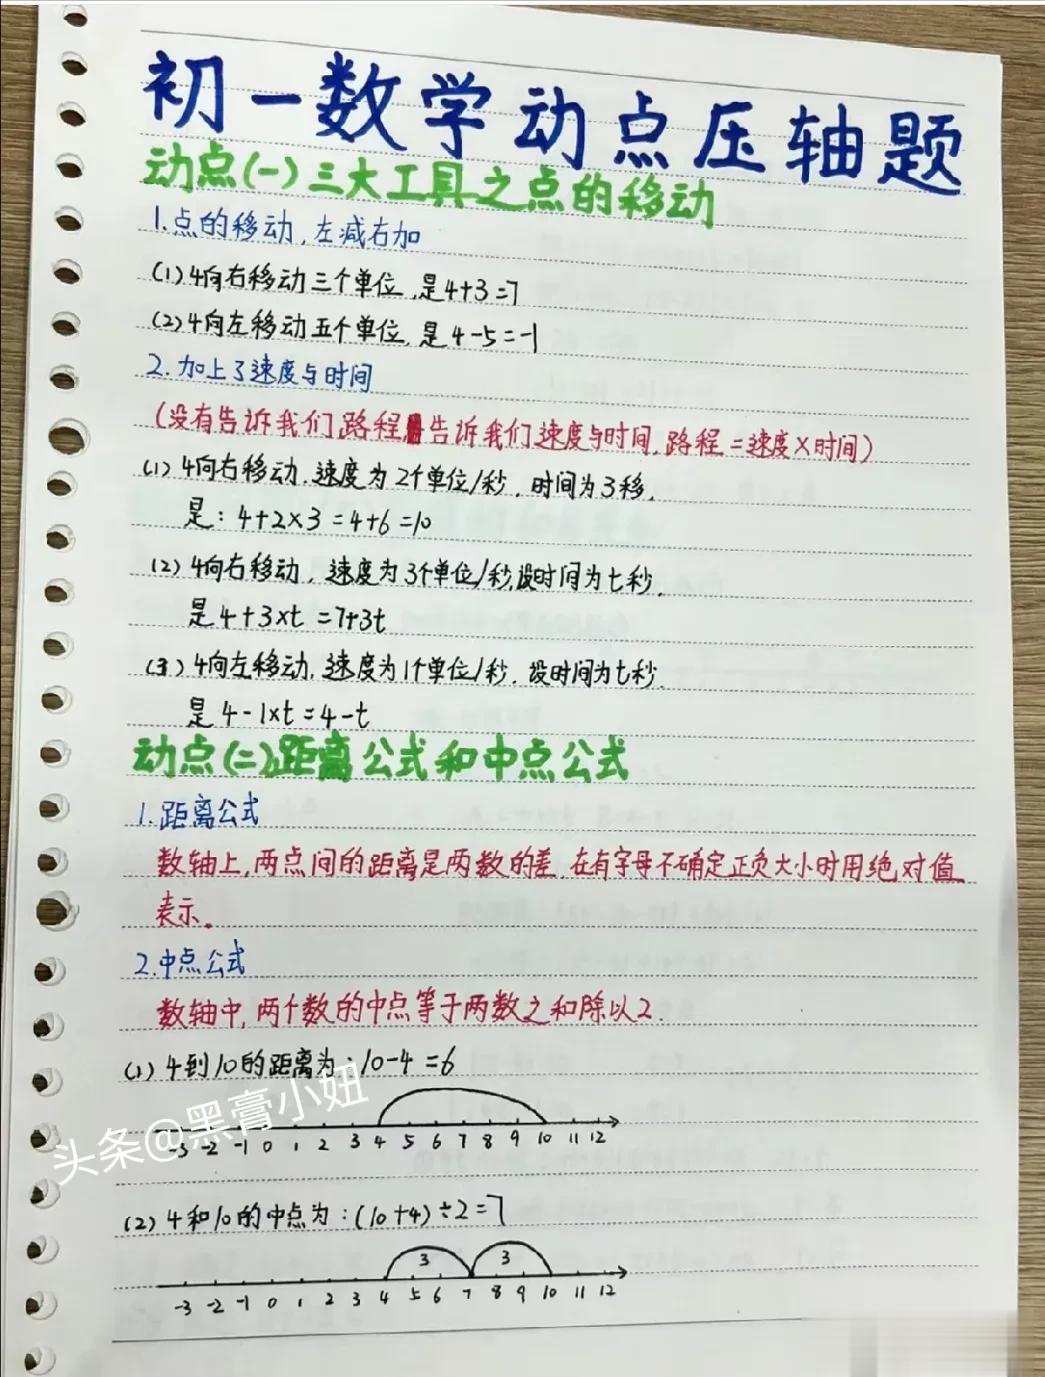 初一数学动点压轴题
动点(一)三大工具之点的移动
1.点的移动,左减右加
(1)4向右移动三个单位,是4+3=7
(2)4向左移动五个单位,是4-5=-1
2.加上了速度与时间
(没有告诉我们路程,告诉我们速度与时间,路程=速度×时间)
(1)4向右移动.速度为2个单位/秒,时间为3移.
是:4+2×3=4+6=10
(2)4向右移动,速度为3个单位/秒,设时间为t秒.
是4+3×t=7+3t
(3)4向左移动,速度为1个单位/秒.设时间为t秒.
是4-1×t=4-t
动点(二)距离公式和中点公式
1.距离公式
数轴上,两点间的距离是两数的差,在有字母不确定正负大小时用绝对值
表示。
2.中点公式
数轴中,两个数的中点等于两数之和除以2.
(1)4到10的距离为:10-4=6
-3 -2 -1 0 1 2 3 4 5 6 7 8 9 10 11 12
头条@黑膏小妞
(2)4和10的中点为:(10+4)÷2=7
3 3
-3 -2 -1 0 1 2 3 4 5 6 7 8 9 10 11 12